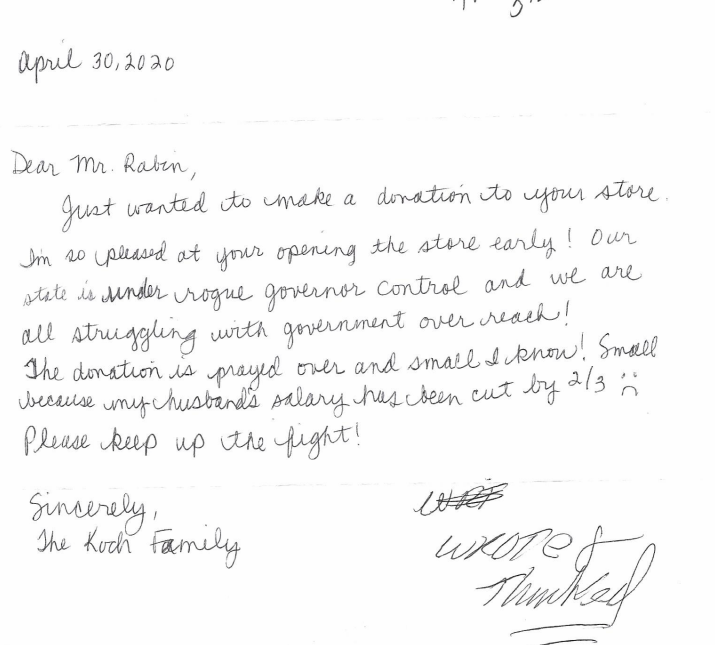 April 30, 2020
Dear Mr. Rabin,
Just wanted to make a donation to your store.
I'm so pleased at your opening the store early! Our
state is under rogue governor control and we are
all struggling with government over reach!
The donation is prayed over and small I know! Small
because my husband's salary has been cut by 2/3 :(
Please keep up the fight!
Sincerely,
The Koch Family
WROTE &
Thanked